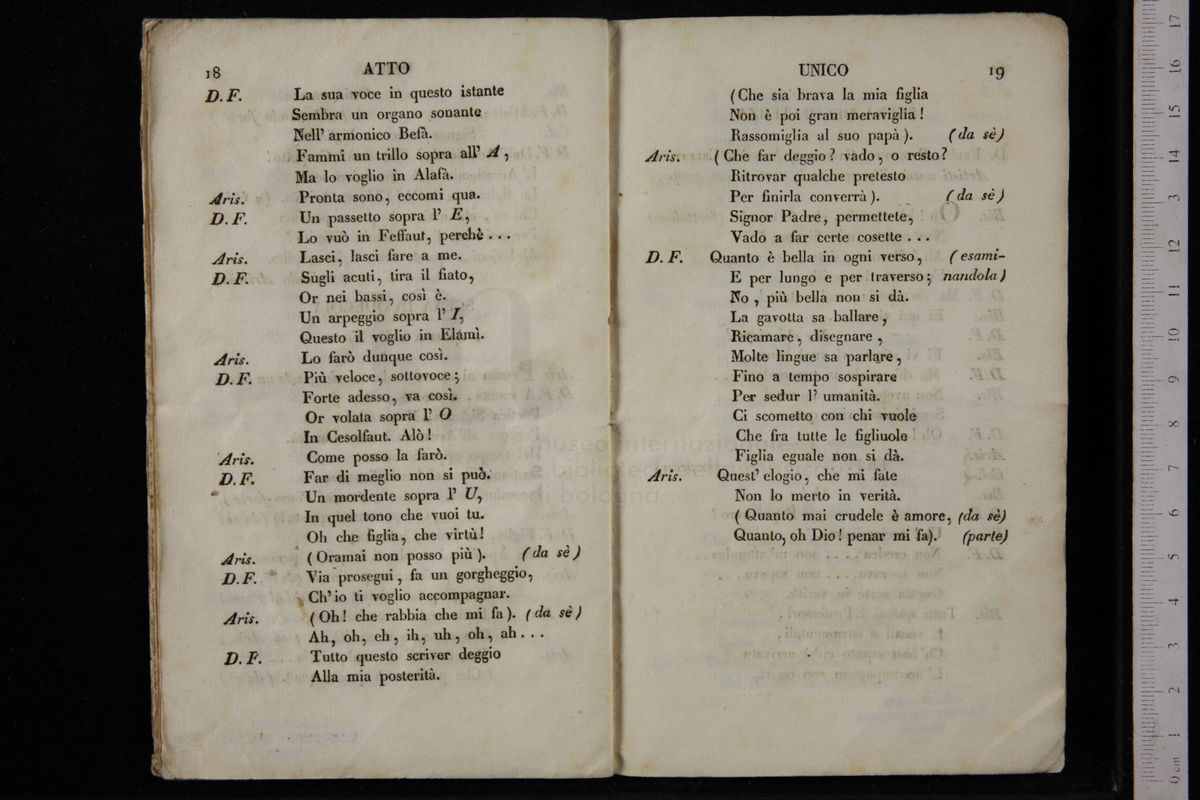 18 ATTO
D. F. La sua voce in questo istante
Sembra un organo sonante
Nell' armonico Befà.
Fammi un trillo sopra all' A,
Ma lo voglio in Alafà.
Aris. Pronta sono, eccomi qua.
D. F. Un passetto sopra l' E,
Lo vuò in Feffaut, perchè...
Aris. Lasci, lasci fare a me.
D. F. Sugli acuti, tira il fiato,
Or nei bassi, così è.
Un arpeggio sopra l' I,
Questo il voglio in Elamì.
Aris. Lo farò dunque così.
D. F. Più veloce, sottovoce;
Forte adesso, va così.
Or volata sopra l' O
In Cesolfaut. Alò!
Aris. Come posso la farò.
D. F. Far di meglio non si può.
Un mordente sopra l' U,
In quel tono che vuoi tu.
Oh che figlia, che virtù!
Aris. (Oramai non posso più). (da sè)
D. F. Via prosegui, fa un gorgheggio,
Ch' io ti voglio accompagnar.
Aris. (Oh! che rabbia che mi fa). (da sè)
Ah, oh, eh, ih, uh, oh, ah...
D. F. Tutto questo scriver deggio
Alla mia posterità.
UNICO 19
(Che sia brava la mia figlia
Non è poi gran meraviglia!
Rassomiglia al suo papà). (da sè)
Aris. (Che far deggio? vado, o resto?
Ritrovar qualche pretesto
Per finirla converrà). (da sè)
Signor Padre, permettete,
Vado a far certe cosette...
D. F. Quanto è bella in ogni verso, (esami-
E per lungo e per traverso; nandola)
No, più bella non si dà.
La gavotta sa ballare,
Ricamare, disegnare,
Molte lingue sa parlare,
Fino a tempo sospirare
Per sedur l' umanità.
Ci scometto con chi vuole
Che fra tutte le figliuole
Figlia eguale non si dà.
Aris. Quest' elogio, che mi fate
Non lo merto in verità.
(Quanto mai crudele è amore, (da sè)
Quanto, oh Dio! penar mi fa). (parte)
museo internazionale
e biblioteca della musica
di bologna
0 cm 1 2 3 4 5 6 7 8 9 10 11 12 13 14 15 16 17